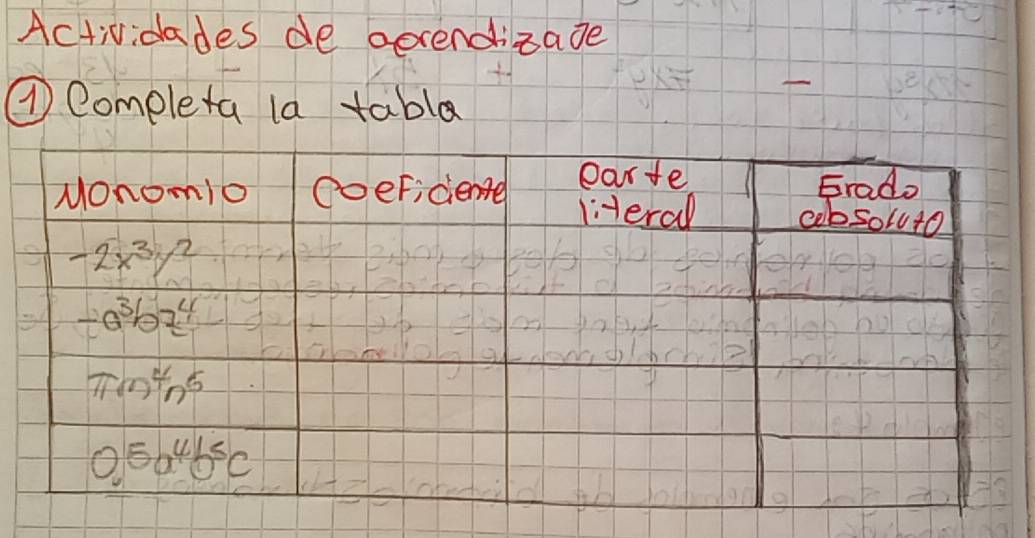 Actividades de aprendizaje
① Completa la tabla
Monomio Coeficiente Parte literal Grado absoluto
-2x³y²
-a³bz⁴
πm⁴n⁵
0,5a⁴b⁵c